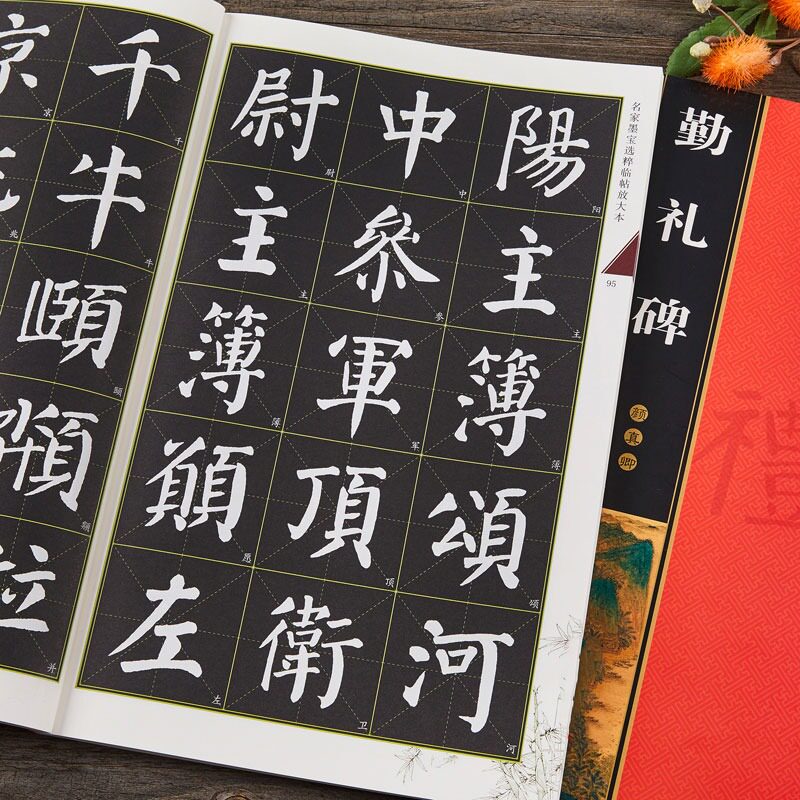 陽主簿頌河
阳主簿颂河
中參軍頂衛
中参军顶卫
尉主簿願左
尉主簿愿左
千牛頤
千牛颐
并
京
京兆
名家墨宝选粹临帖放大本
95
勤礼碑
颜真卿
禮